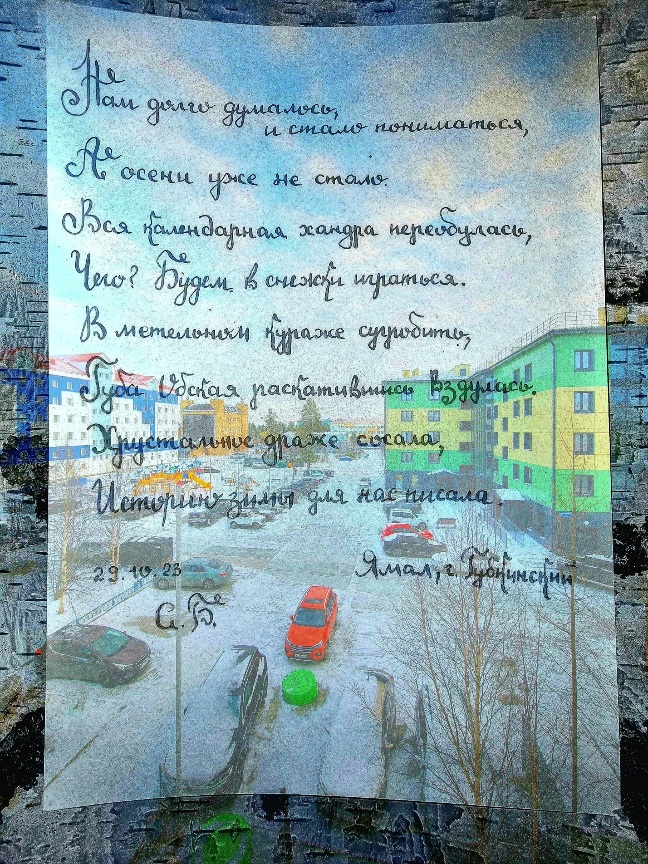 Нам долго думалось,
и стало пониматься,
А осени уже не стало.
Вся календарная хандра переобулась,
Чего? Будем в снежки играться.
В метельном кураже сугробить,
Губа Обская раскатившись вздулась.
Хрустальное драже сосала,
Историю зимы для нас писала.
29.10.23
Ямал, г. Губкинский
С.Б.